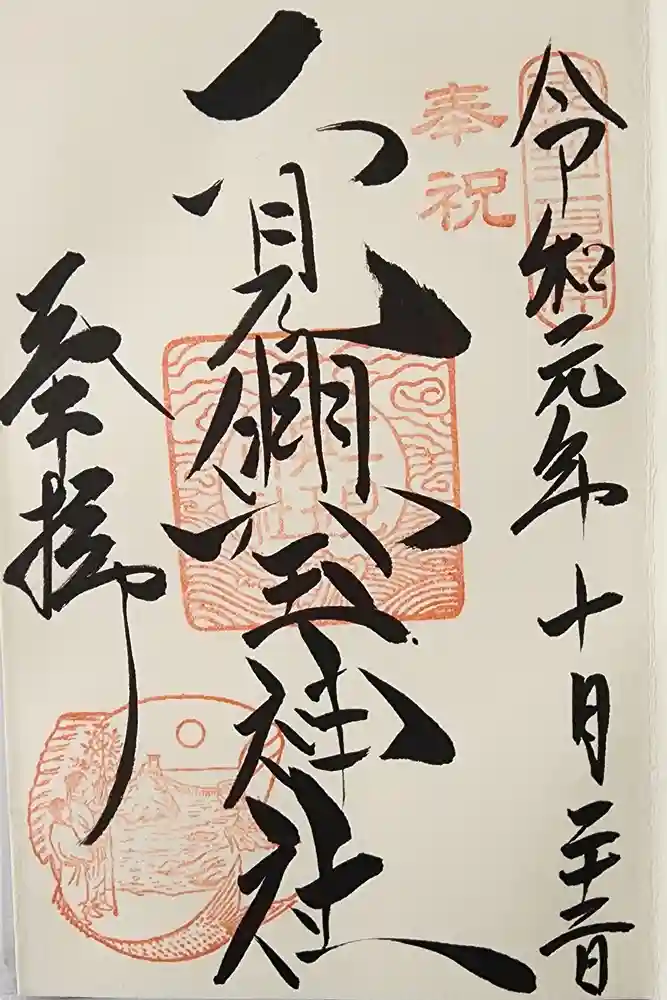 令和元年十月二十二日
奉祝
二見興玉神社
奉拝